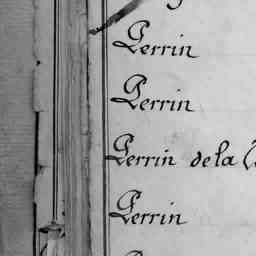 Perrin
Perrin
Perrin de la
Perrin